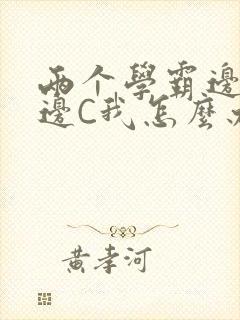 两个學霸邊
邊C我怎麼
黄孝河